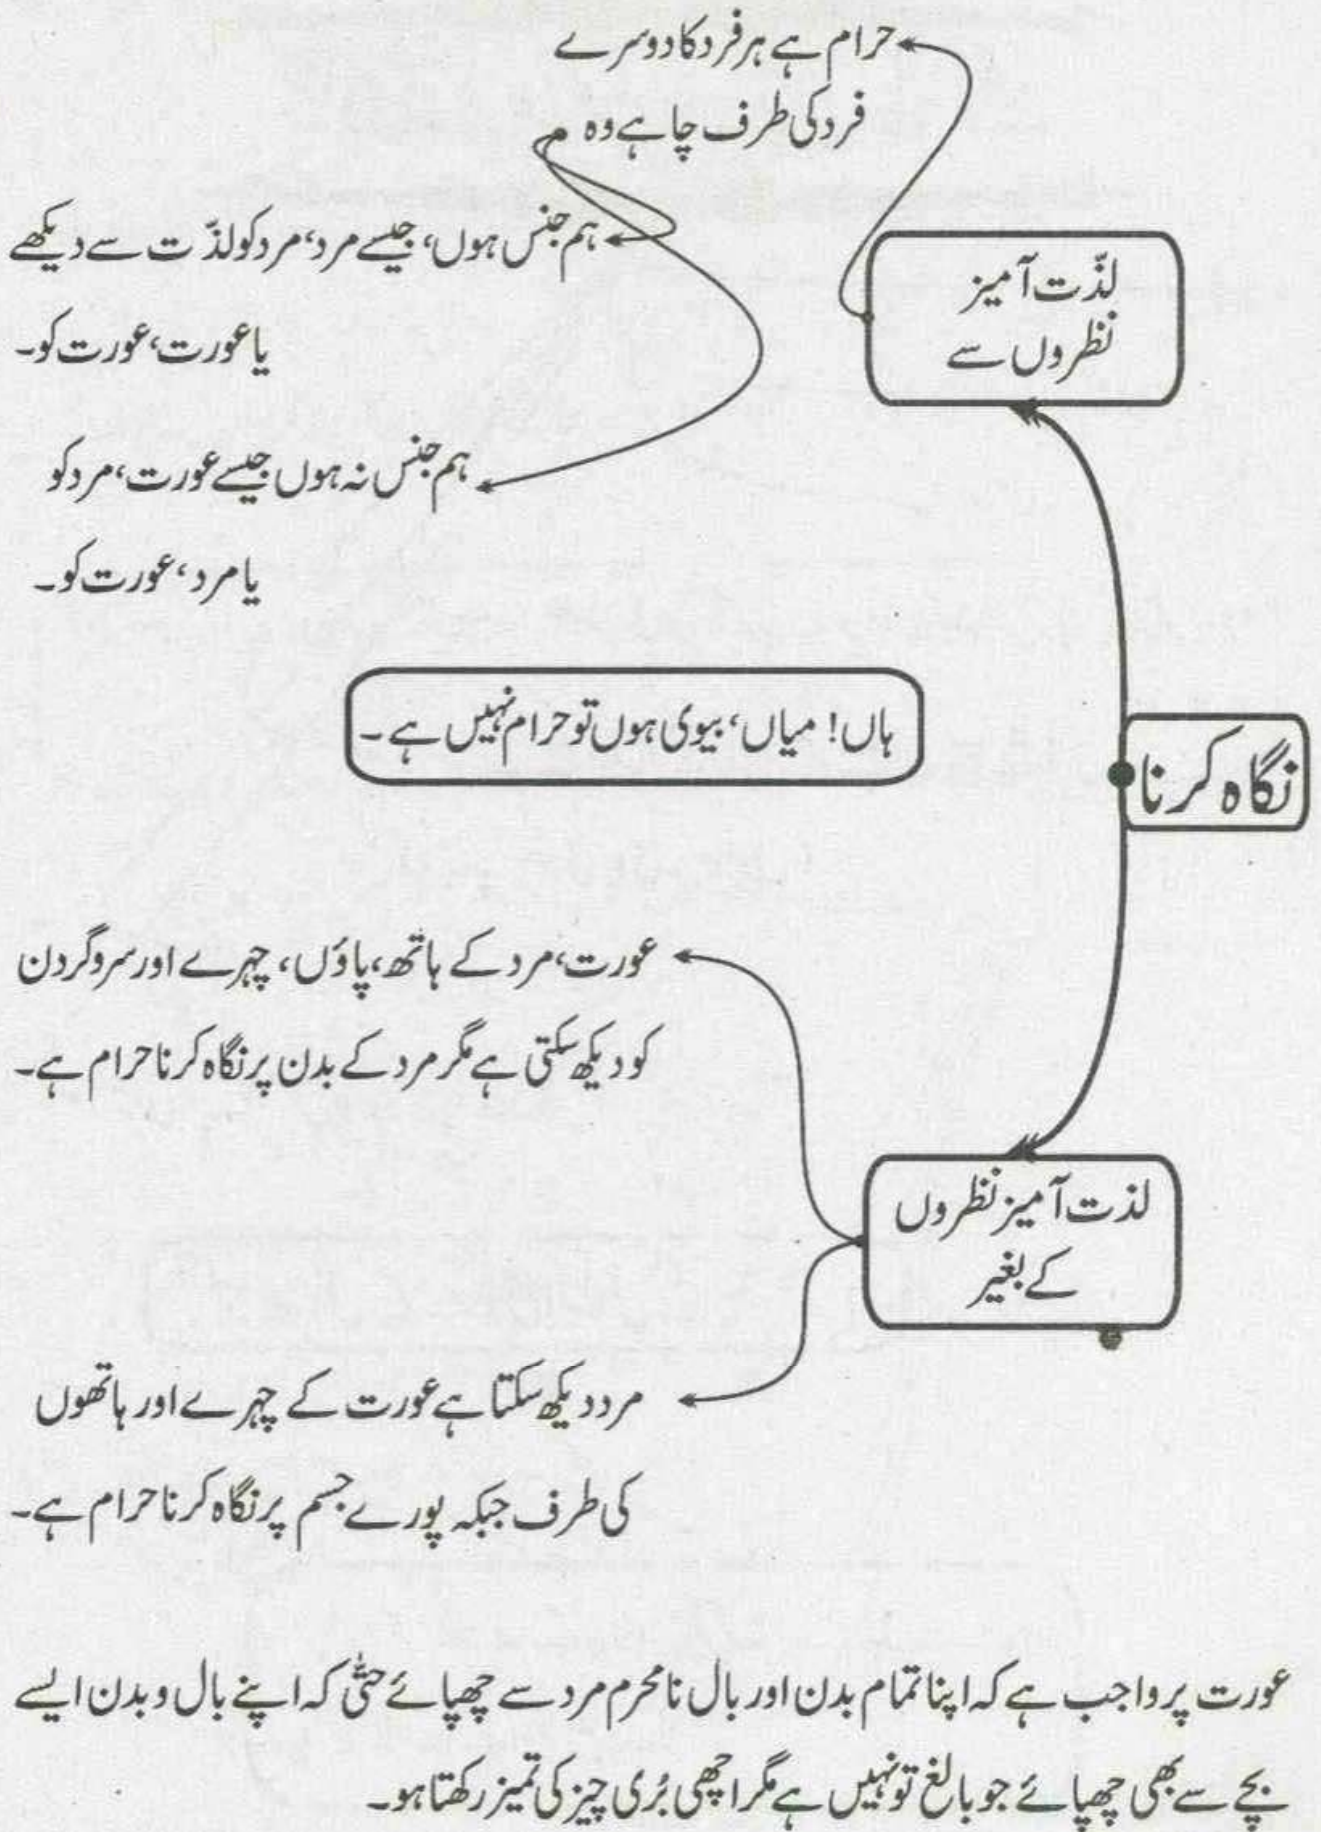 حرام ہے ہر فرد کا دوسرے
فرد کی طرف چاہے وہ
لذّت آمیز
نظروں سے
ہم جنس ہوں، جیسے مرد، مرد کو لذّت سے دیکھے
یا عورت، عورت کو۔
ہم جنس نہ ہوں جیسے عورت، مرد کو
یا مرد، عورت کو۔
ہاں! میاں، بیوی ہوں تو حرام نہیں ہے۔
نگاہ کرنا
عورت، مرد کے ہاتھ، پاؤں، چہرے اور سر و گردن
کو دیکھ سکتی ہے مگر مرد کے بدن پر نگاہ کرنا حرام ہے۔
لذت آمیز نظروں
کے بغیر
مرد دیکھ سکتا ہے عورت کے چہرے اور ہاتھوں
کی طرف جبکہ پورے جسم پر نگاہ کرنا حرام ہے۔
عورت پر واجب ہے کہ اپنا تمام بدن اور بال نامحرم مرد سے چھپائے حتّٰی کہ اپنے بال و بدن ایسے
بچے سے بھی چھپائے جو بالغ تو نہیں ہے مگر اچھی بُری چیز کی تمیز رکھتا ہو۔